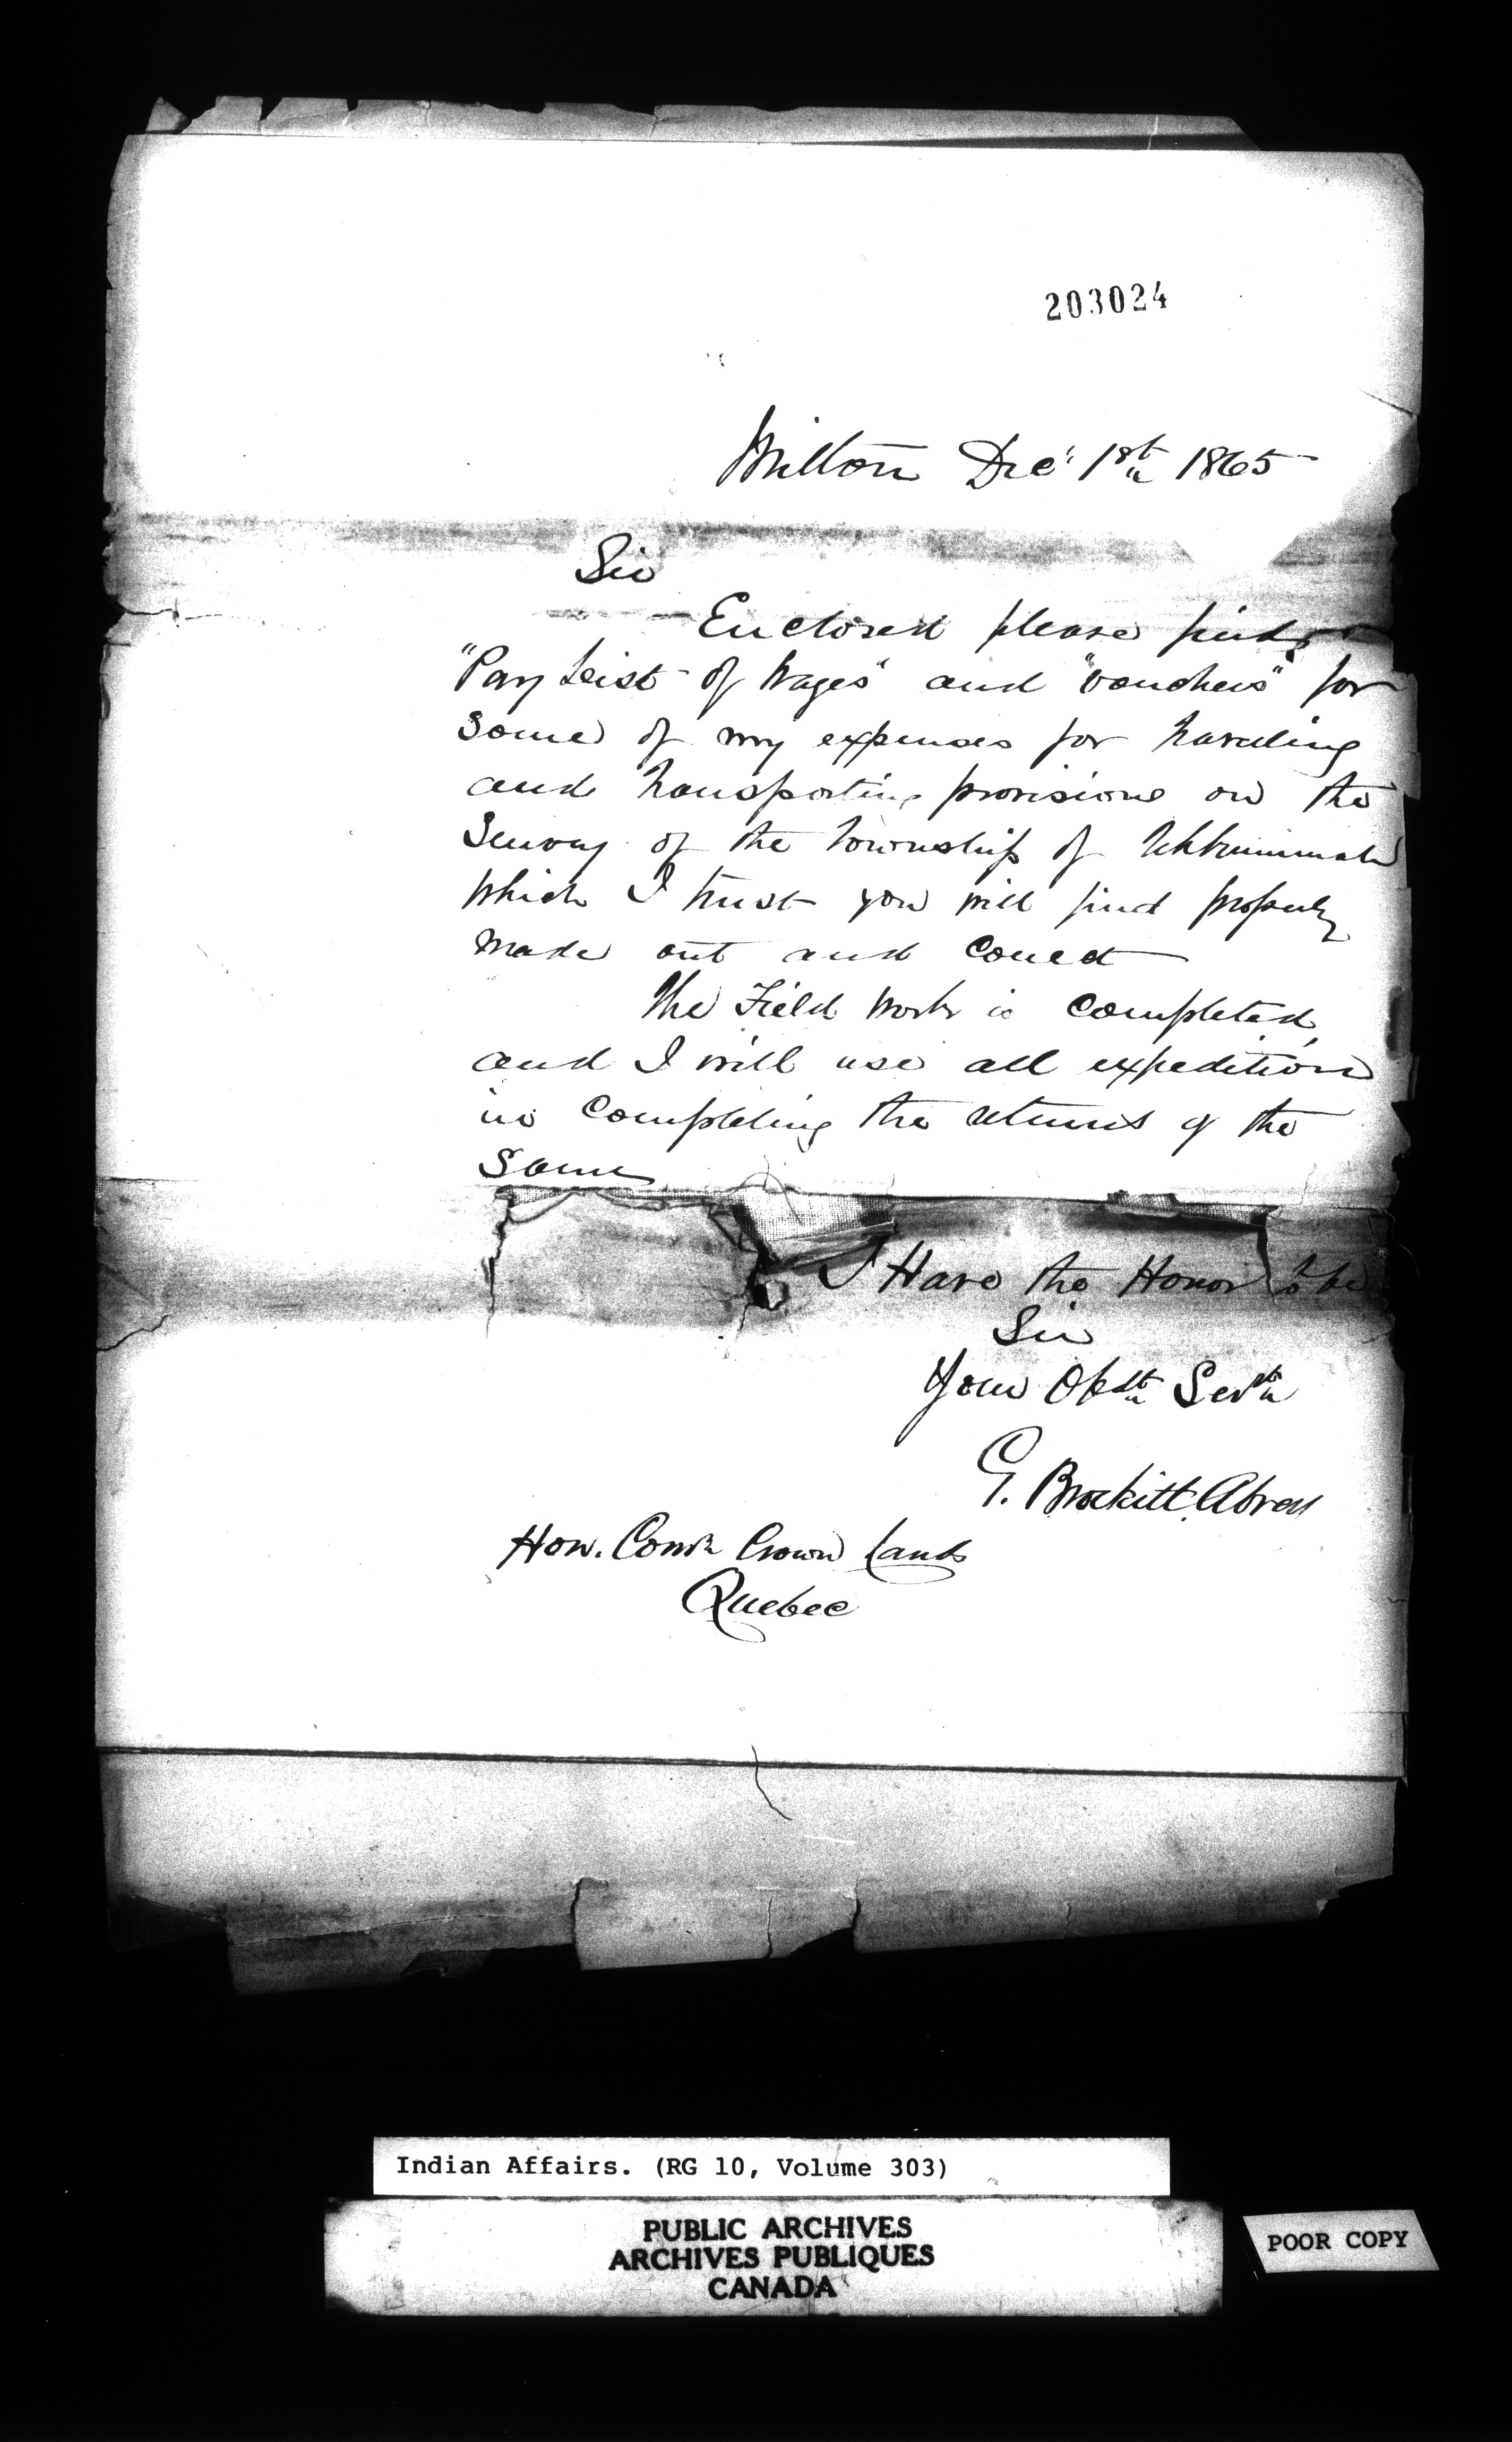 203024
Milton Dec' 1st 1865
Sir
Enclosed please find
"Pay List of Wages" and "Vouchers" for
some of my expenses for traveling
and transporting provisions on the
Survey of the township of Tehkummah
which I trust you will find properly
made out and Correct
The Field work is Completed
and I will use all expedition
in Completing the returns of the
Same
I Have the Honor to be
Sir
Your Obdt Servt
G. Brockitt Abrey
Hon. Comr Crown Lands
Quebec
Indian Affairs. (RG 10, Volume 303)
PUBLIC ARCHIVES
ARCHIVES PUBLIQUES
CANADA
POOR COPY